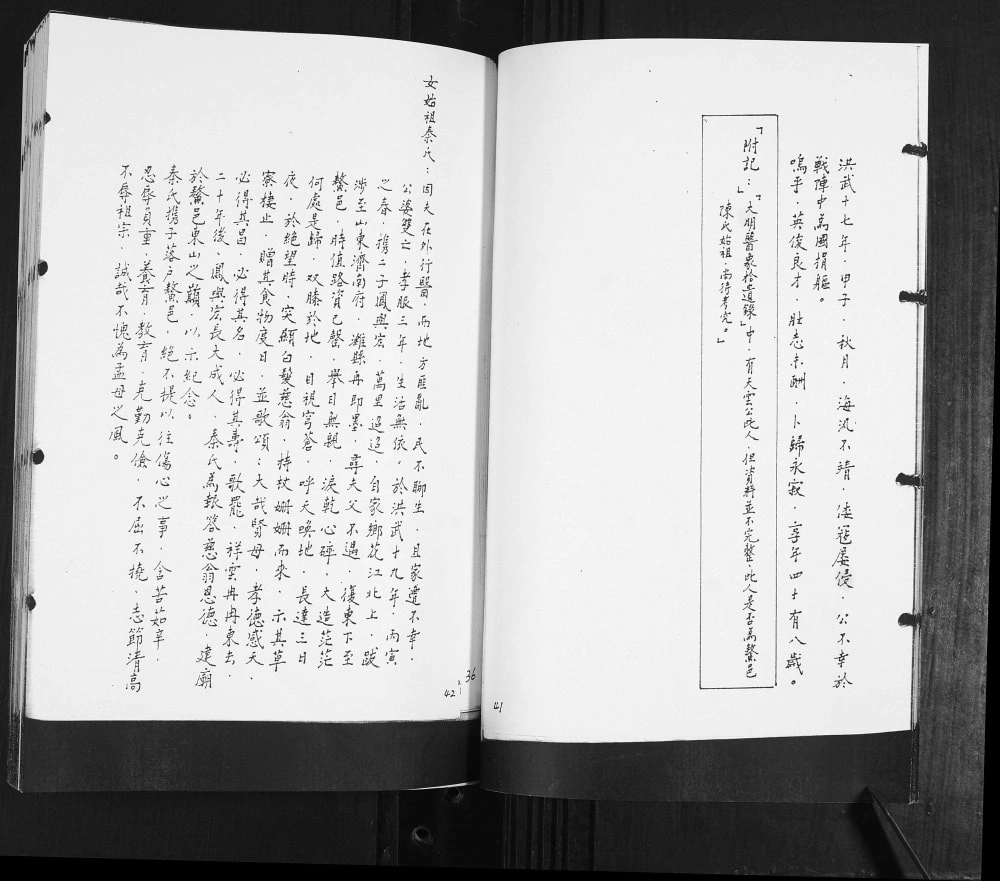 洪武十七年．甲子．秋月．海氛不靖．倭寇屡侵．公不幸於
戰陣中為國捐軀。
嗚乎．英俊良才．壯志未酬．卜歸永寂．享年四十有八歲。
「附記：「大明醫家拾遺錄」中．有天雲公此人．但資料並不完整．此人是否為鰲邑
」陳氏始祖．尚待考究。」
41
女始祖秦氏：因夫在外行醫．而地方匪亂．民不聊生．且家遭不幸．
公婆雙亡．孝服三年．生活無依．於洪武十九年．丙寅
之春．携二子鳳與宏．萬里迢迢．自家鄉花江北上．跋
涉至山東濟南府．濰縣再即墨．尋夫父不遇．復東下至
鰲邑．時值路資已罄．舉目無親．淚乾心碎．大造茫茫
何處是歸．双膝於地．目視穹蒼．呼天喚地．長達三日
夜．於絕望時．突顯白髮慈翁．持杖姍姍而來．示其草
寮棲止．贈其食物度日．並歌頌：大哉賢母．孝德感天．
必得其昌．必得其名．必得其壽．歌罷．祥雲冉冉東去．
二十年後．鳳與宏長大成人．秦氏為報答慈翁恩德．建廟
於鰲邑東山之巔．以示紀念。
秦氏携子落戶鰲邑．絕不提以往傷心之事．含苦茹辛．
忍辱負重．養育．教育．克勤克儉．不屈不撓．志節清高
不辱祖宗．誠哉不愧為孟母之風。
36
42